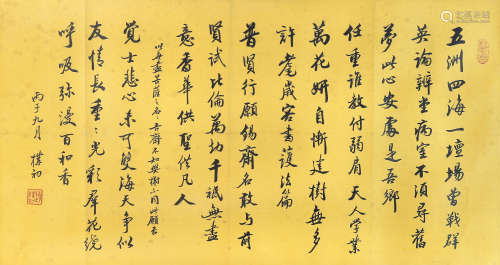 五洲四海一壇場曾戰群
英論辯堂病室不須尋舊
夢此心安處是吾鄉
任重誰教付弱肩天人學業
萬花妍自慚建樹無多
許耄歲容書護法篇
普賢行願錫齋名敢與前
賢試比倫萬劫千祇無盡
意香華供聖供凡人
覺士悲心未可雙海天爭似
友情長重〻光彩群花繞
呼吸彌漫百和香
丙子九月 樸初